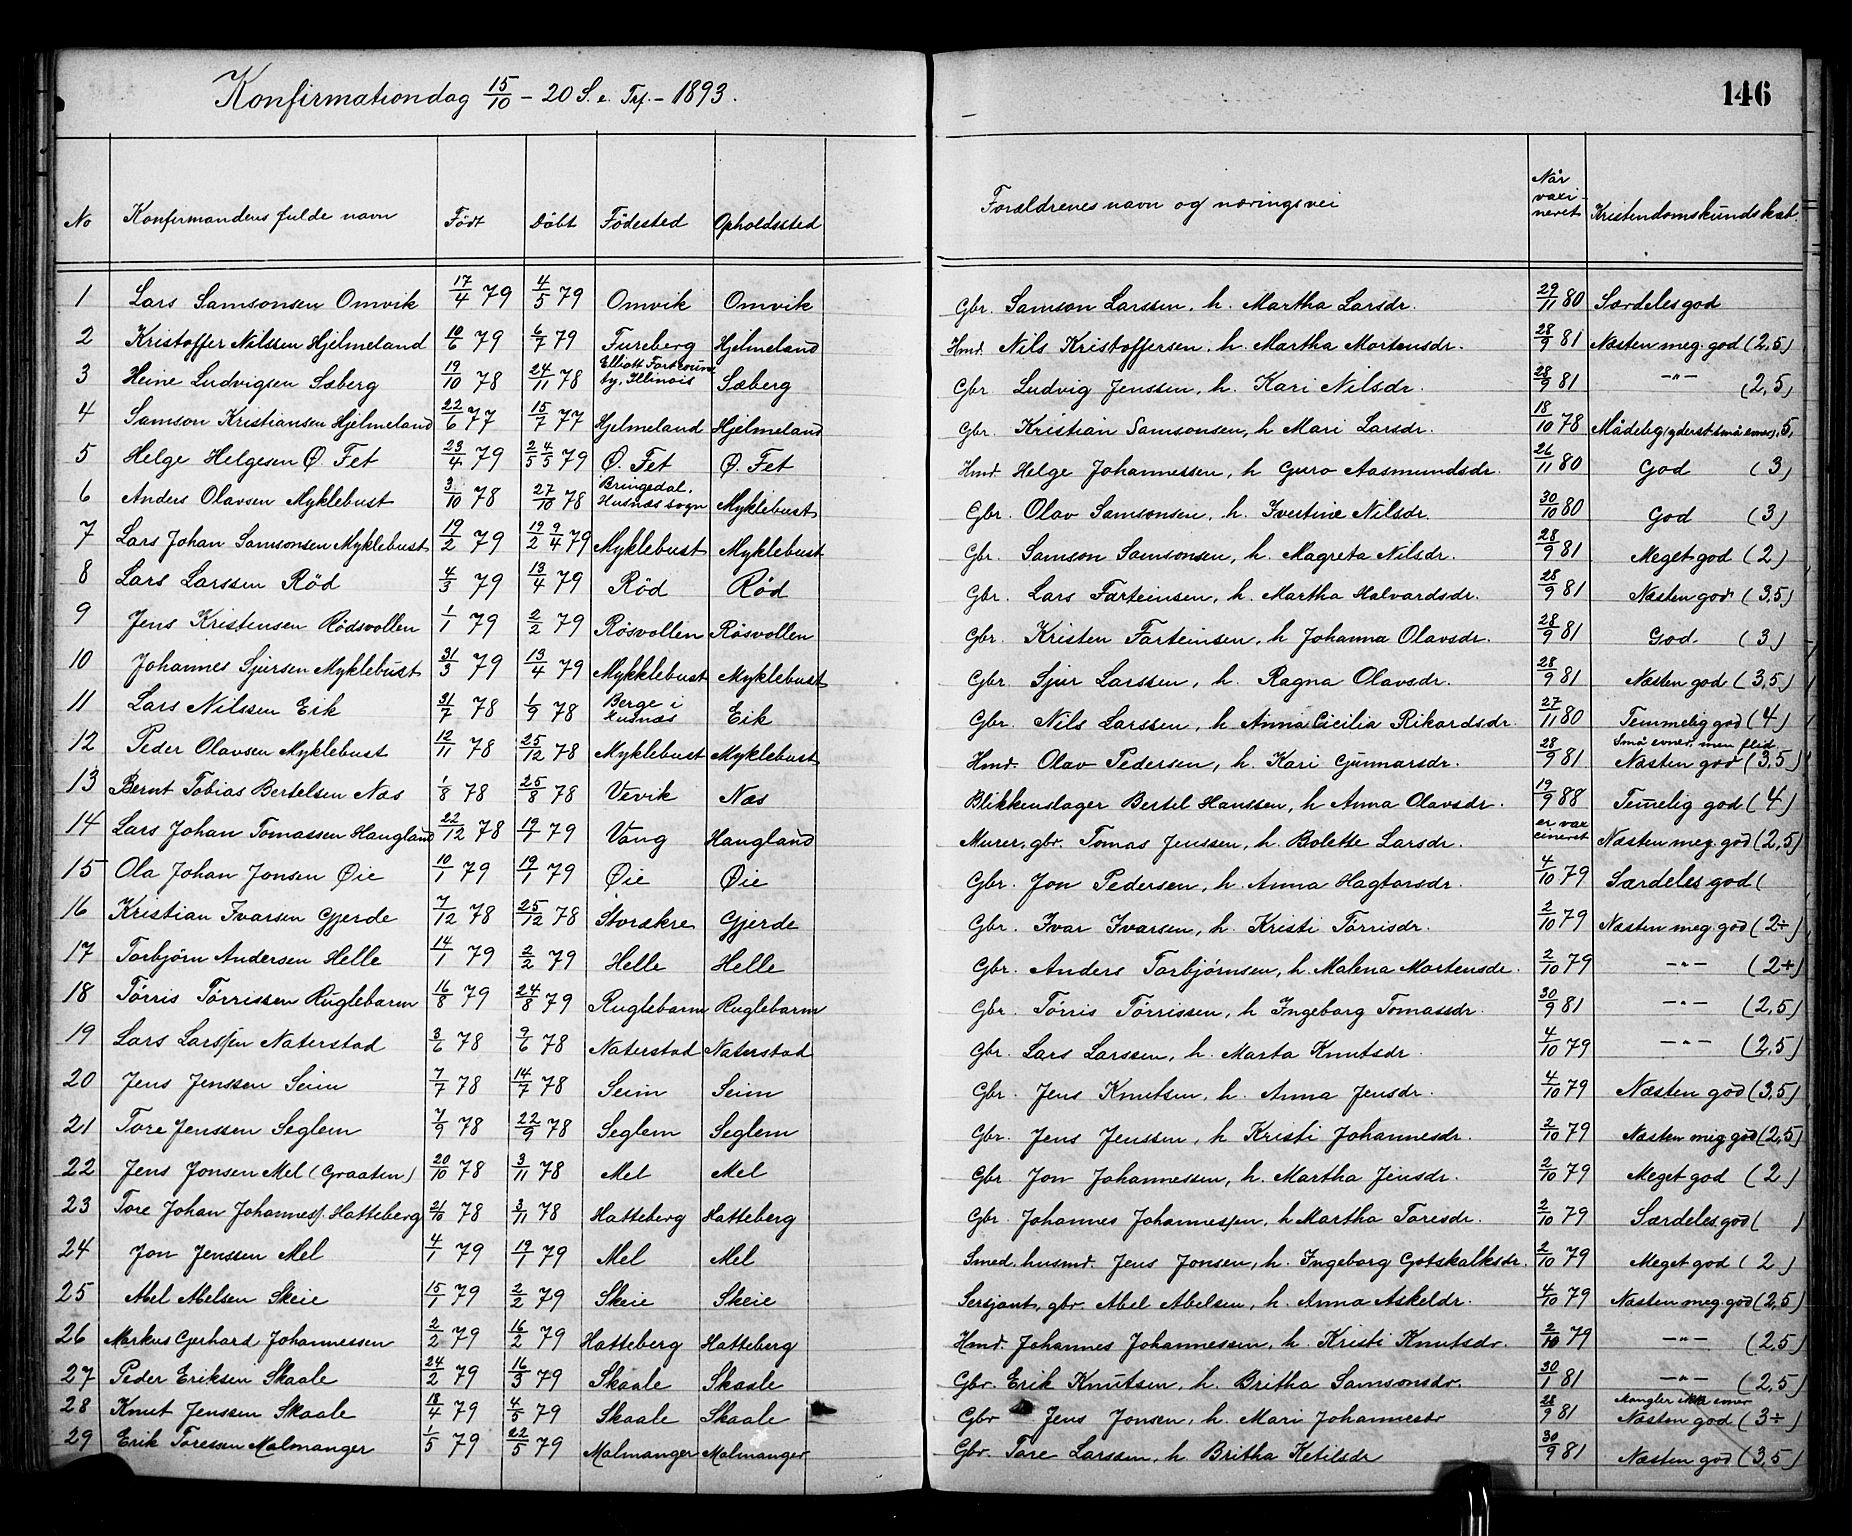 Konfirmationdag 15/10 – 20 S. e. Trf. – 1893.
146
No Konfirmandens fulde navn Født Døbt Fødested Opholdssted Forældrenes navn og næringsvei Når vaxineret Kristendomskundskab.
1 Lars Samsonsen Omvik 17/4 79 4/5 79 Omvik Omvik Gbr. Samson Larssen, h. Martha Larsdr. 29/11 80 Særdeles god
2 Kristoffer Nilssen Hjelmeland 10/6 79 6/7 79 Fureberg Hjelmeland Hmd. Nils Kristoffersen, h. Martha Mortensdr. 28/9 81 Næsten meg. god (2,5)
3 Heine Ludvigsen Sæberg 19/10 78 24/11 78 Elliott by, Illinois Sæberg Gbr Ludvig Jenssen, h. Kari Nilsdr. 28/9 81 –"– (2,5)
4 Samson Kristiansen Hjelmeland 22/6 77 15/7 77 Hjelmeland Hjelmeland Gbr. Kristian Samsonsen, h Mari Larsdr. 18/10 78 Mådelig (yderst små evner), 5,
5 Helge Helgesen Ø. Fet 23/4 79 24/5 4/5 79 Ø. Fet Ø. Fet Hmd. Helge Johannessen, h Guro Aasmundsdr. 26/11 80 God (3)
6 Anders Olavsen Myklebust 3/10 78 27/10 78 Bringedal, Husnæs sogn Myklebust Gbr. Olav Samsonsen, h. Ivertine Nilsdr. 30/10 80 God (3)
7 Lars Johan Samsonsen Myklebust 19/2 79 19/2 9/4 79 Myklebust Myklebust Gbr. Samson Samsonsen, h. Magreta Nilsdr. 28/9 81 Meget god (2)
8 Lars Larssen Rød 4/3 79 13/4 79 Rød Rød Gbr. Lars Farteinsen, h. Martha Halvardsdr. 28/9 81 Næsten god (3,5)
9 Jens Kristensen Rødsvollen 1/1 79 2/2 79 Røsvollen Røsvollen Gbr. Kristen Farteinsen, h Johanna Olavsdr. 28/9 81 God. (3)
10 Johannes Sjursen Myklebust 31/3 79 13/4 79 Mykklebust Myklebust Gbr. Sjur Larssen, h. Ragna Olavsdr. 28/9 81 Næsten god (3,5)
11 Lars Nilssen Eik 31/7 78 1/9 78 Berge i Husnæs Eik Gbr. Nils Larssen, h Anna Cicilia Rikardsdr. 27/11 80 Temmelig god (4)
12 Peder Olavsen Myklebust 12/11 78 25/12 78 Myklebust Myklebust Hmd. Olav Pedersen, h. Kari Gunnarsdr. 28/9 81 Små evner, men flid Næsten god (3,5)
13 Bernt Tobias Bertelsen Næs 1/8 78 25/8 78 Vevik Næs Blikkenslager Bertel Hanssen, h Anna Olavsdr. 19/9 88 Temelig god (4)
14 Lars Johan Tomassen Haugland 22/12 78 19/1 79 Vang Haugland Murer, gbr. Tomas Jenssen, h. Bolette Larsdr. er vaxcineret Næsten meg. god (2,5)
15 Ola Johan Jonsen Øie 10/1 79 19/1 79 Øie Øie Gbr. Jon Pedersen, h. Anna Hagtorsdr. 4/10 79 Særdeles god (
16 Kristian Ivarsen Gjerde 7/12 78 25/12 78 Storakre Gjerde Gbr. Ivar Ivarsen, h. Kristi Tørrisdr. 2/10 79 Næsten meg. god (2÷)
17 Torbjørn Andersen Helle 14/1 79 2/2 79 Helle Helle Gbr. Anders Torbjørnsen, h. Malena Mortensdr. 2/10 79 –"– (2+)
18 Tørris Tørrissen Ruglebarm 16/8 79 24/8 79 Ruglebarm Ruglebarm Gbr. Tørris Tørrissen, h Ingeborg Tomassdr. 30/9 81 –"– (2,5)
19 Lars Larssen Naterstad 3/6 78 9/6 78 Naterstad Naterstad Gbr. Lars Larssen, h. Marta Knutsdr. 4/10 79 –"– (2,5)
20 Jens Jenssen Seim 7/7 78 14/7 78 Seim Seim Gbr. Jens Knutsen, h. Anna Jensdr. 4/10 79 Næsten god (3,5)
21 Tore Jenssen Seglem 7/9 78 22/9 78 Seglem Seglem Gbr. Jens Jenssen, h Kristi Johannesdr. 2/10 79 Næsten meg god (2,5)
22 Jens Jonsen Mel (Graaten) 20/10 78 3/11 78 Mel Mel Gbr. Jon Johannessen, h. Martha Jensdr. 2/10 79 Meget god (2)
23 Tore Johan Johanness. Hatteberg 21/10 78 3/11 78 Hatteberg Hatteberg Gbr. Johannes Johannessen, h Martha Toresdr. 2/10 79 Særdeles god ( )
24 Jon Jenssen Mel 4/1 79 19/1 79 Mel Mel Smed, husmd. Jens Jonsen, h. Ingeborg Gotskalksdr. 2/10 79 Meget god (2)
25 Abel Abelsen Skeie 15/1 79 2/2 79 Skeie Skeie Sersjant, gbr. Abel Abelsen, h. Anna Askeldr. 4/10 79 Næsten meg. god (2,5)
26 Markus Gerhard Johannessen 2/2 79 16/2 79 Hatteberg Hatteberg Hmd. Johannes Johannessen, h. Kristi Knutsdr. 2/10 79 –"– (2,5)
27 Peder Eriksen Skaale 24/2 79 16/3 79 Skaale Skaale Gbr. Erik Knutsen, h. Britha Samsonsdr. 30/1 81 –"– (2,5)
28 Knut Jenssen Skaale 18/4 79 4/5 79 Skaale Skaale Gbr Jens Jonsen, h. Mari Johannesdr 28/9 81 Mangler ikke evner Næsten god (3÷)
29 Erik Toressen Malmanger 1/5 79 22/5 79 Malmanger Malmanger Gbr. Tore Larssen, h. Britha Ketilsdr 30/9 81 Næsten god (3,5)